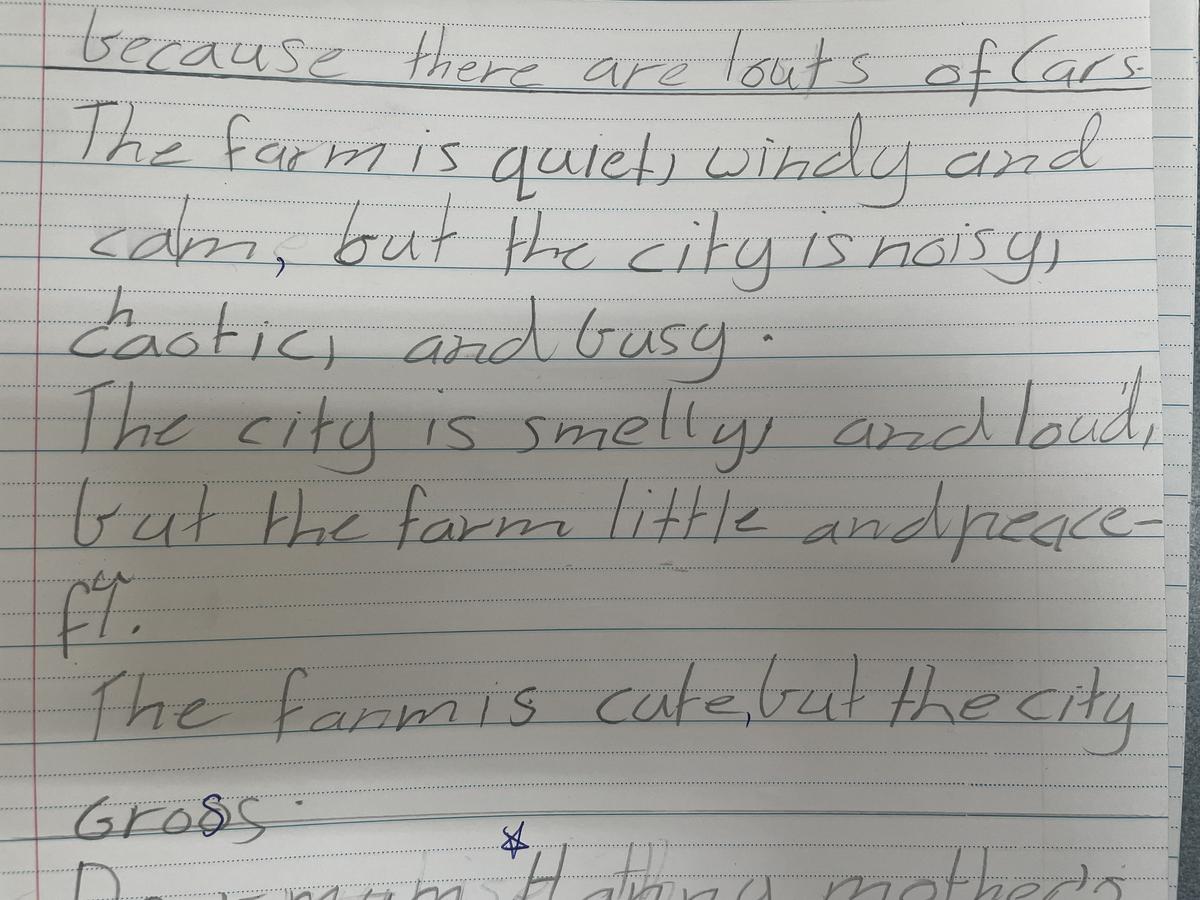 because there are louts of Cars.
The farm is quiet, windy and
calm, but the city is noisy,
chaotic, and busy.
The city is smelly, and loud,
but the farm little and peace-
ful.
The farm is cute, but the city
Gross.
mother's